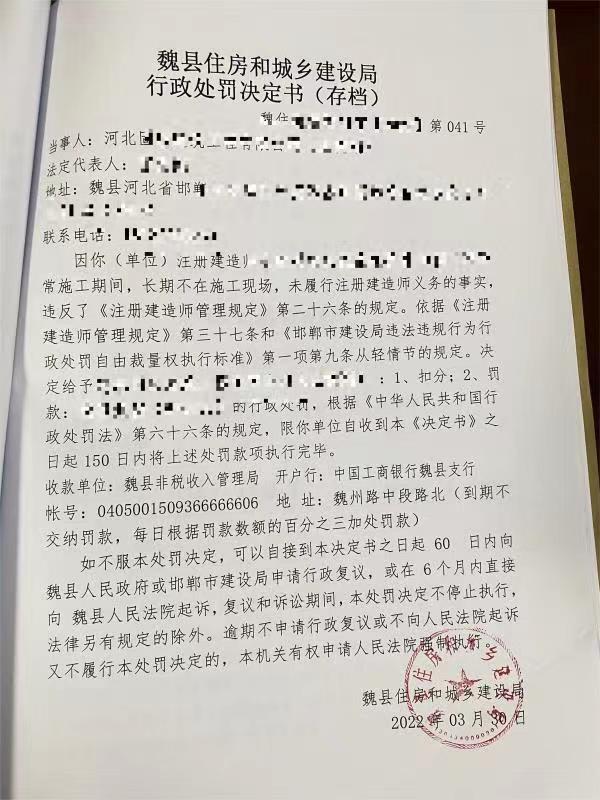 魏县住房和城乡建设局
行政处罚决定书（存档）
魏住 第 041 号
当事人：河北
法定代表人：
地址：魏县河北省邯郸
联系电话：
因你（单位）注册建造师
常施工期间，长期不在施工现场，未履行注册建造师义务的事实，
违反了《注册建造师管理规定》第二十六条的规定。依据《注册
建造师管理规定》第三十七条和《邯郸市建设局违法违规行为行
政处罚自由裁量权执行标准》第一项第九条从轻情节的规定。决
定给予 ：1、扣分；2、罚
款： 的行政处罚，根据《中华人民共和国行
政处罚法》第六十六条的规定，限你单位自收到本《决定书》之
日起 150 日内将上述处罚款项执行完毕。
收款单位：魏县非税收入管理局 开户行：中国工商银行魏县支行
帐号：0405001509366666606 地 址：魏州路中段路北（到期不
交纳罚款，每日根据罚款数额的百分之三加处罚款）
如不服本处罚决定，可以自接到本决定书之日起 60 日内向
魏县人民政府或邯郸市建设局申请行政复议，或在 6 个月内直接
向 魏县人民法院起诉，复议和诉讼期间，本处罚决定不停止执行，
法律另有规定的除外。逾期不申请行政复议或不向人民法院起诉
又不履行本处罚决定的，本机关有权申请人民法院强制执行
魏县住房和城乡建设局
2022 年 03 月 30 日